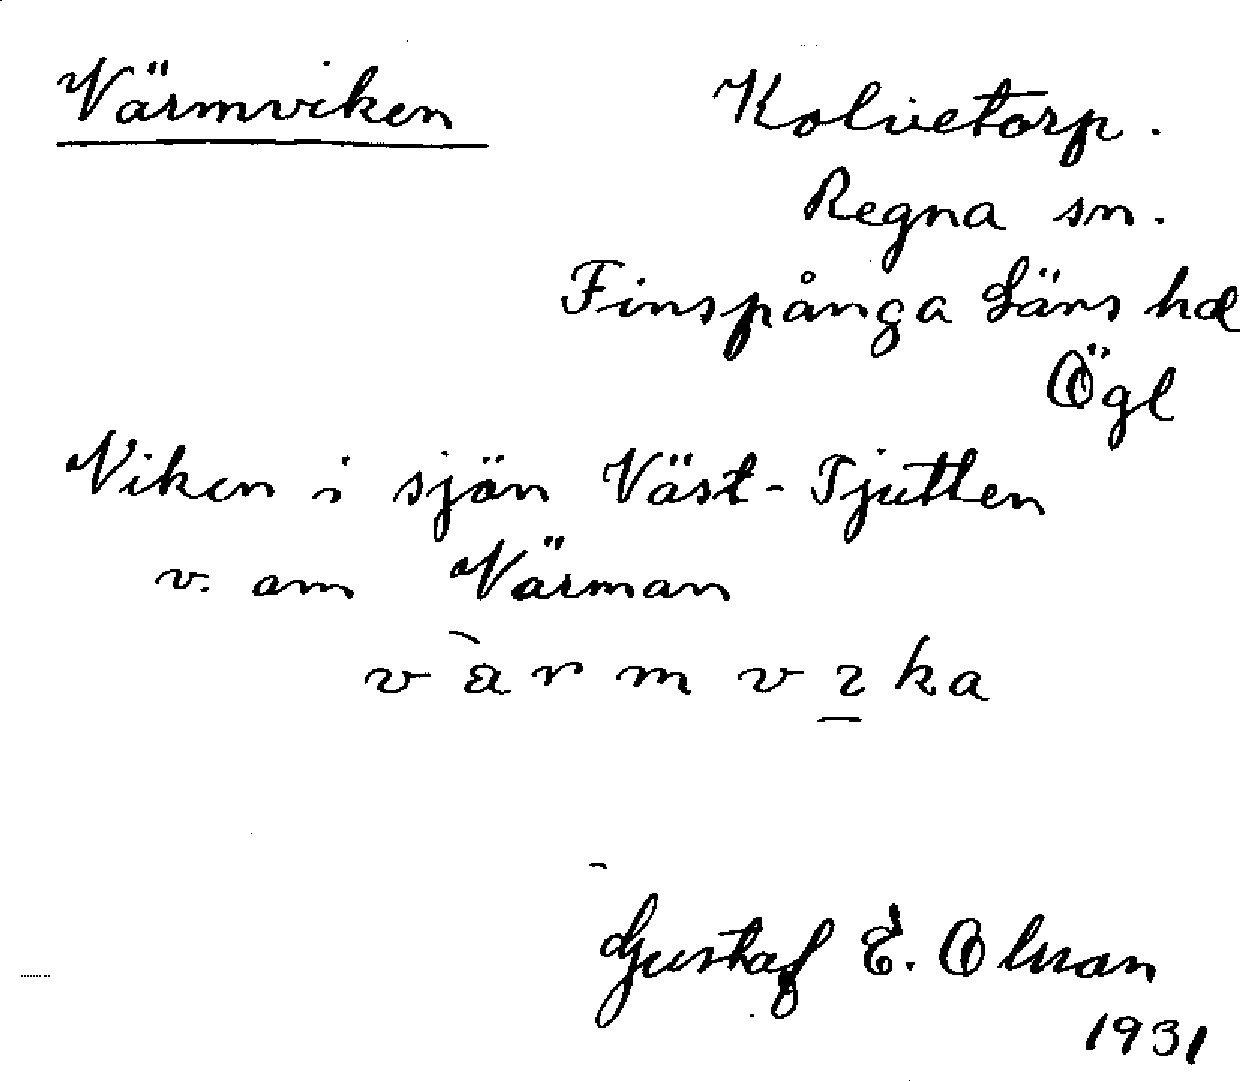 Värmviken
Kolvetorp.
Regna sn.
Finspånga Läns hd
Ögl
Viken i sjön Väst-Tjutten
v. om Värman
värmvika
Gustaf E. Olsson
1931